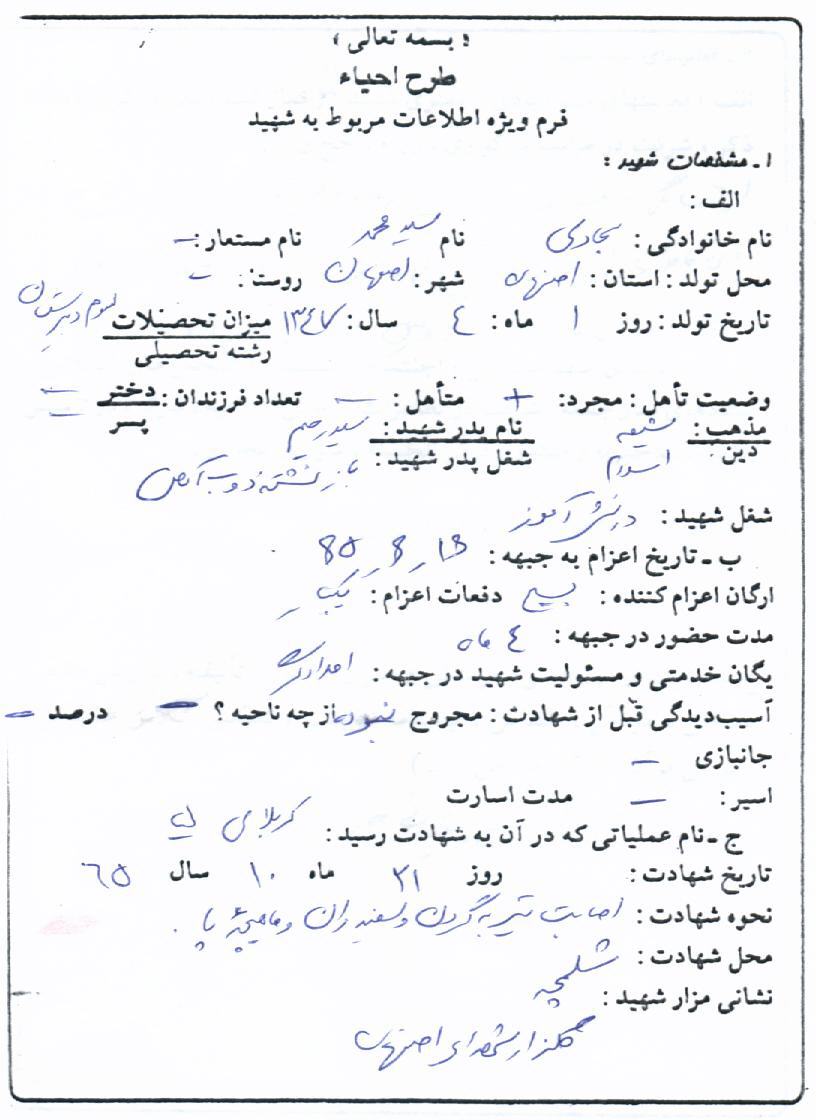 « بسمه تعالی »
طرح احیاء
فرم ویژه اطلاعات مربوط به شهید
۱ ـ مشخصات شهید :
الف :
نام خانوادگی : سجادی نام سید محمد نام مستعار : –
محل تولد : استان : اصفهان شهر : اصفهان روستا : –
تاریخ تولد : روز ۱ ماه : ٤ سال : ۱۳٤۷ میزان تحصیلات سوم دبیرستان
رشته تحصیلی
وضعیت تأهل : مجرد : + متأهل : – تعداد فرزندان : دختر –
پسر –
مذهب : شیعه نام پدر شهید : سید رحیم
دین : اسلام شغل پدر شهید : بازنشسته ذوب آهن
شغل شهید : دانش آموز
ب ـ تاریخ اعزام به جبهه :
ارگان اعزام کننده : بسیج دفعات اعزام : یکبار
مدت حضور در جبهه : ٤ ماه
یگان خدمتی و مسئولیت شهید در جبهه : امدادگر
آسیب‌دیدگی قبل از شهادت : مجروح نبوده از چه ناحیه ؟ – درصد –
جانبازی –
اسیر : – مدت اسارت
ج ـ نام عملیاتی که در آن به شهادت رسید : کربلای ۵
تاریخ شهادت : روز ۲۱ ماه ۱۰ سال ٦۵
نحوه شهادت : اصابت تیر به گردن و سفید ران و ماهیچهٔ پا .
محل شهادت : شلمچه
نشانی مزار شهید :
گلزار شهدای اصفهان